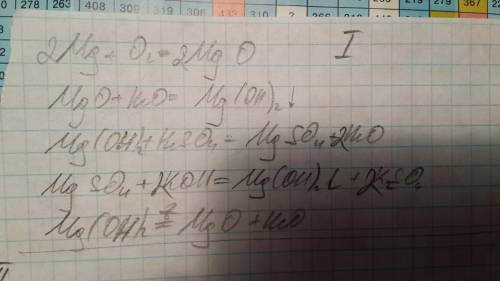 0 278 263 408 309 306 433 310 2 266
I
2Mg + O₂ = 2MgO
MgO + H₂O = Mg(OH)₂↓
Mg(OH)₂ + H₂SO₄ = MgSO₄ + 2H₂O
MgSO₄ + 2KOH = Mg(OH)₂↓ + 2K₂SO₄
Mg(OH)₂ = MgO + H₂O